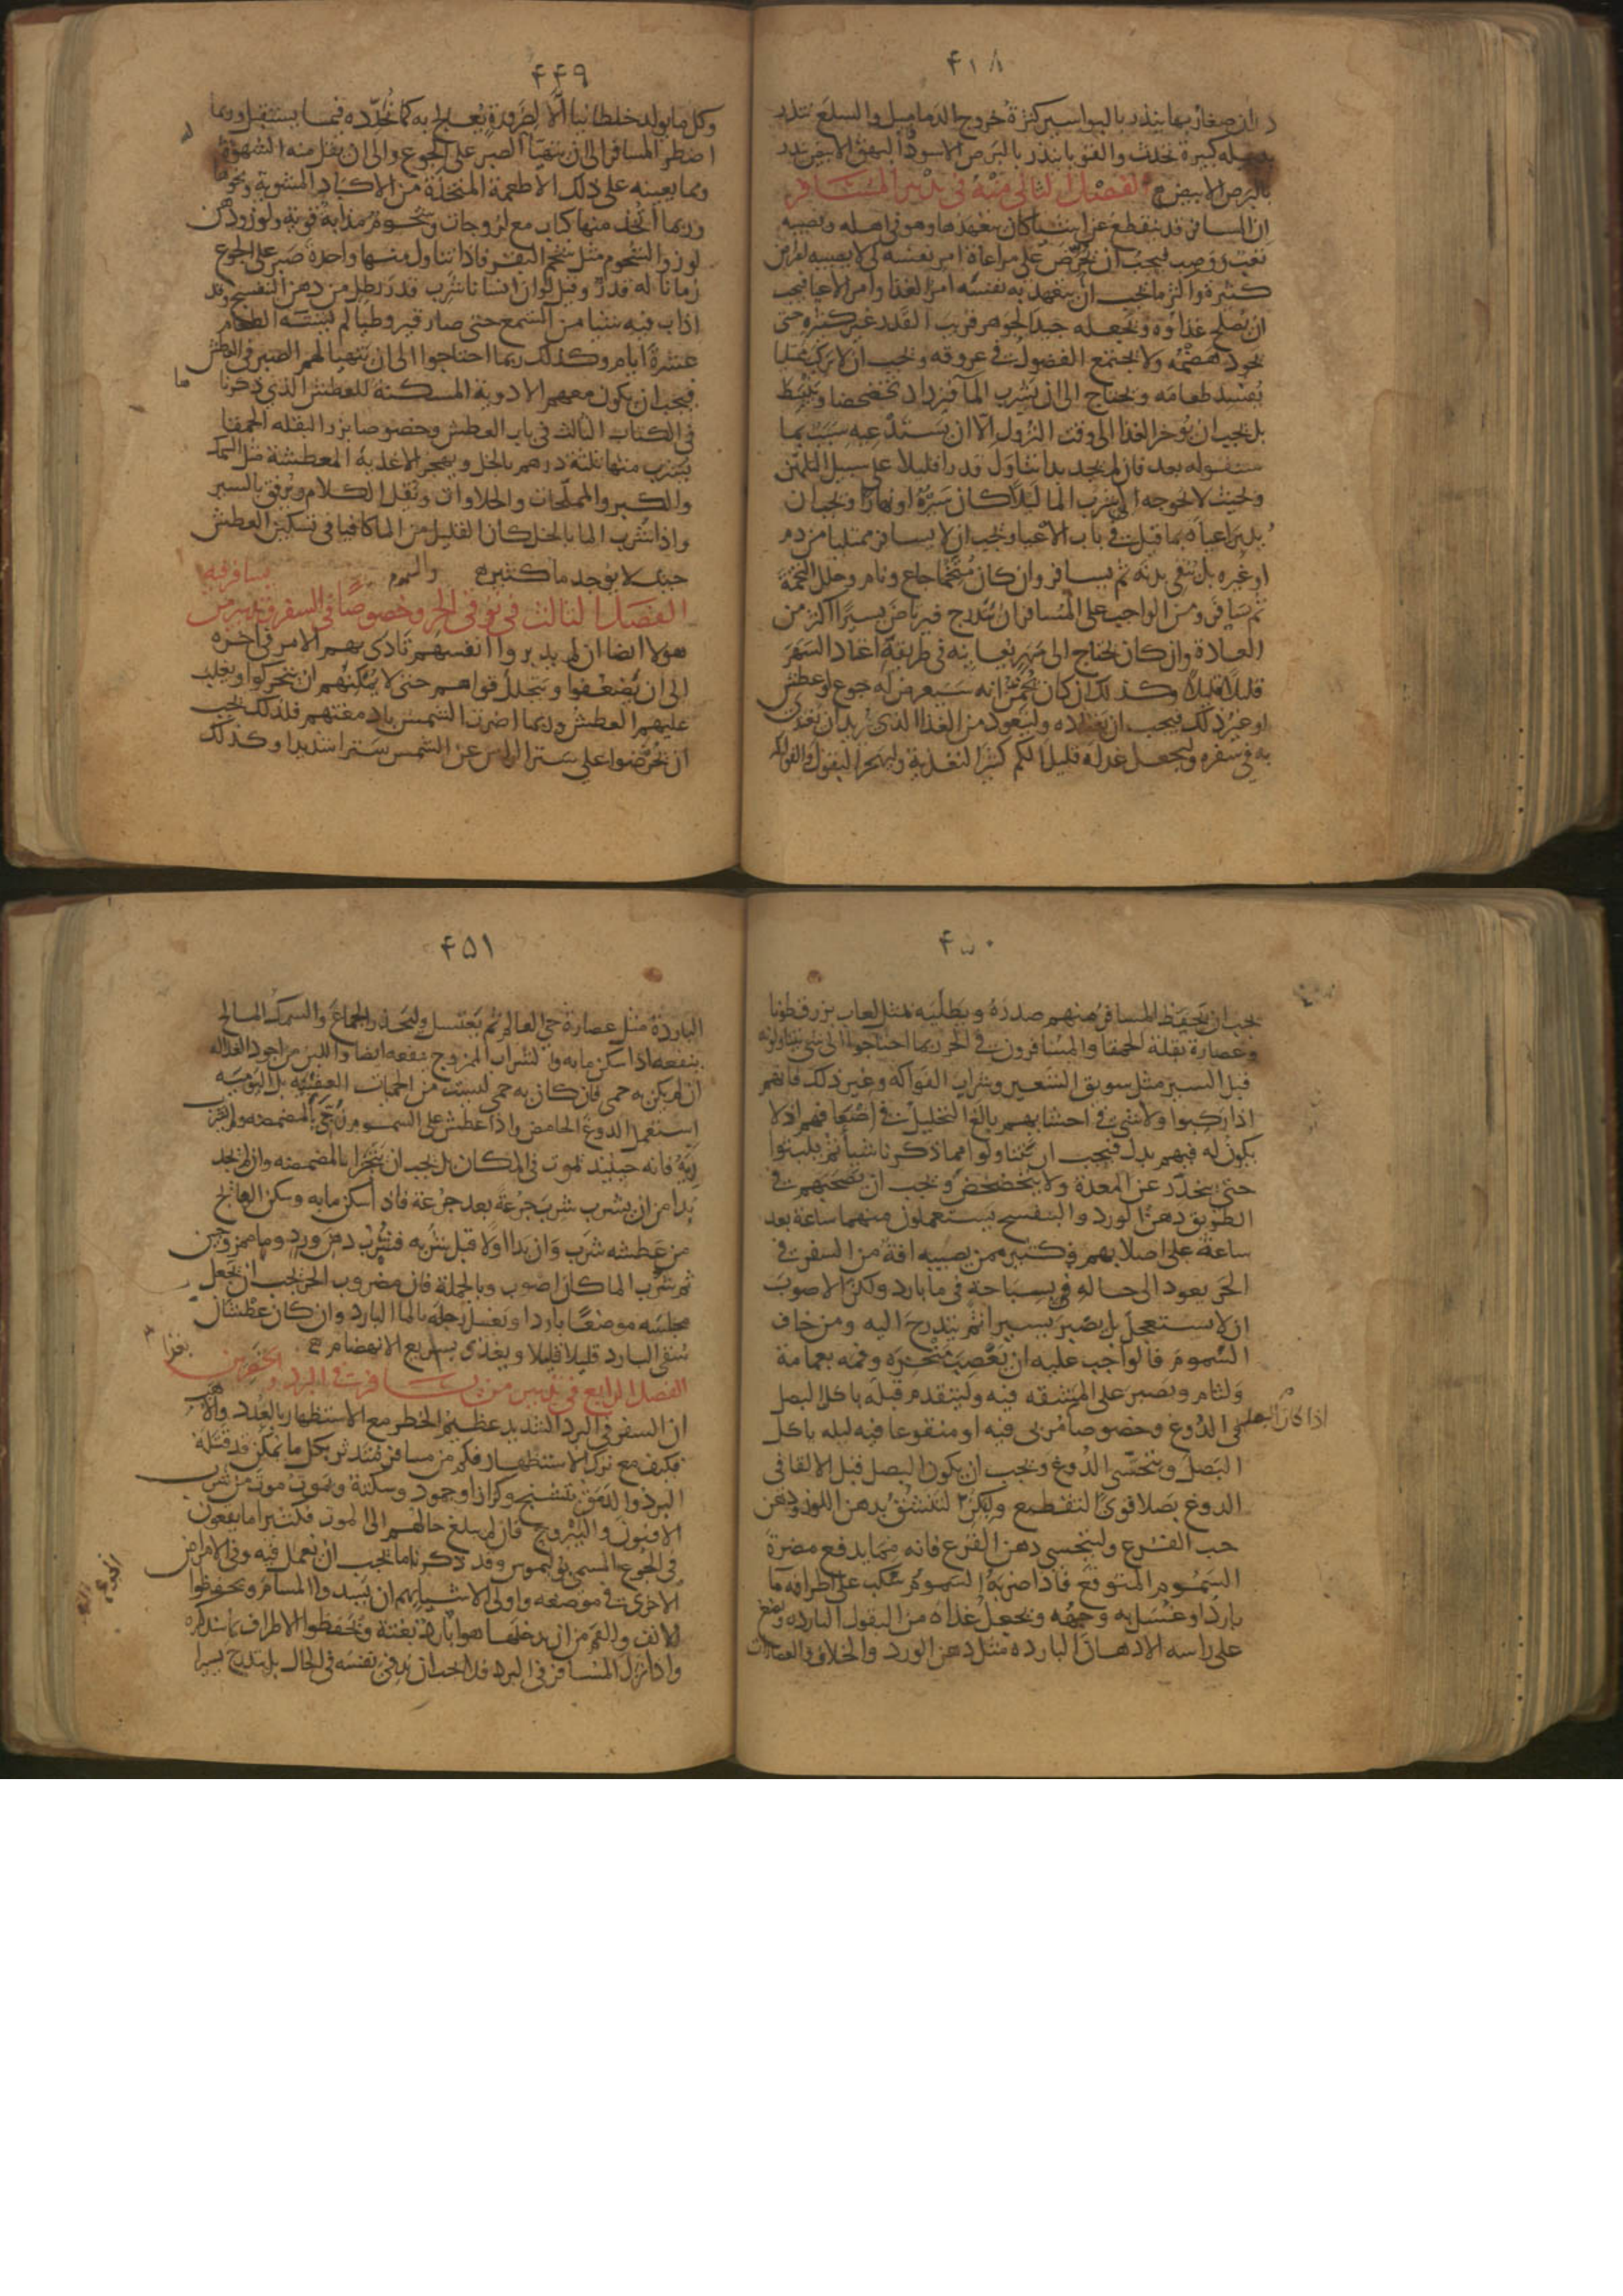 ۴۴۸
بها ينذر بالبواسير كثرة خروج الدماميل والسلع تنذر
بدبيلة كبيرة تحدث والقوبا ينذر بالبرص الاسود البهق الابيض ينذر
بالبرص الابيض الفصل الثاني منه في تدبير المسافر
ان المسافر قد ينقطع عن اشياء كان يتعهدها وهو في اهله ويصيبه
تعب ووصب فيجب ان يحرص على مراعاة امر نفسه لئلا يصيبه امراض
كثيرة واكثر ما يجب ان يتعهد به نفسه امر الغذا وامر الاعيا فيجب
ان يصلح غذاوه ويجعله جيد الجوهر قريب القدر غير كثيره حتى
يجود هضمه ولا يجتمع الفضول في عروقه ويجب ان لا يركب ممتليا
يفسد طعامه ويحتاج الى ان يشرب الما فيزداد تخضخضا ويتبسط
بل يجب ان يوخر الغذا الى وقت النزول الا ان يستدعيه سبب بما
سنقوله بعد فان لم يجد بدا تناول قدرا قليلا على سبيل التلهن
وبحيث لا يحوجه الى شرب الما ليلا كان سيره او نهارا ويجب ان
يدبر اعياه بما قيل في باب الاعيا ويجب ان لا يسافر ممتليا من دم
او غيره بل ينقي بدنه ثم يسافر وان كان متخما جاع ونام وحلل التخمة
ثم يسافر ومن الواجب على المسافر ان يتدرج فيرتاض يسيرا اكثر من
العادة وان كان يحتاج الى سهر يعانيه في طريقه اعتاد السهر
قليلا قليلا وكذلك ان كان يخمن انه سيعرض له جوع او عطش
او غير ذلك فيجب ان يعتاده وليتعود من الغذا الذي يريد ان يغتذي
به في سفره وليجعل غذاه قليل الكم كثير التغذية وليهجر البقول والفواكه
۴۴۹
وكل ما يولد خلطا نيا الا لضرورة يعالج به كما نحدده فيما يستقبل وربما
اضطر المسافر الى ان يتهيا الصبر على الجوع والى ان يقل منه الشهوة
ومما يعينه على ذلك الاطعمة المتخذة من الاكباد المشوية ونحوها
وربما اتخذ منها كباب مع لزوجات وشحوم مذابة قوية ولوز ودهن
لوز والشحوم مثل شحم البقر فاذا تناول منها واحدة صبر على الجوع
زمانا له قدر وقيل لو ان انسانا شرب قدر رطل من دهن البنفسج وقد
اذاب فيه شيا من الشمع حتى صار قيروطيا لم يشته الطعام
عشرة ايام وكذلك ربما احتاجوا الى ان يتهيا لهم الصبر في العطش
فيجب ان يكون معهم الادوية المسكنة للعطش الذي ذكرنا
في الكتاب الثالث في باب العطش وخصوصا بزر البقلة الحمقا
يشرب منها ثلثة درهم بالخل ويهجر الاغذية المعطشة مثل السمك
والكبر والمملحات والحلاوات ويقل الكلام ويرفق بالسير
واذا شرب الما بالخل كان القليل من الما كافيا في تسكين العطش
حيث لا يوجد ما كثير
الفصل الثالث في توقي الحر وخصوصا في السفر وتدبير من يسافر فيه
والسموم
هولا ايضا ان لم يدبروا انفسهم تادى بهم الامر في اخره
الى ان يضعفوا ويتحلل قواهم حتى لا يمكنهم ان يتحركوا ويغلب
عليهم العطش وربما اضرت الشمس بادمغتهم فلذلك يجب
ان يحرصوا على ستر الراس عن الشمس سترا شديدا وكذلك
۴۵۰
يجب ان يحفظ المسافر منهم صدره ويطليه بمثل لعاب بزر قطونا
وعصارة بقلة الحمقا والمسافرون في الحر ربما احتاجوا الى شي يتناولونه
قبل السير مثل سويق الشعير وشراب الفواكه وغير ذلك فانهم
اذا ركبوا ولا شي في احشايهم بالغ التحليل في اضعافهم اذ لا
يكون له فيهم بدل فيجب ان يتناولوا مما ذكرنا شيا ثم يلبثوا
حتى ينحدر عن المعدة ولا يتخضخض ويجب ان يصحبهم في
الطريق دهن الورد والبنفسج يستعملون منهما ساعة بعد
ساعة على اصلابهم وكثير ممن يصيبه افة من السفر في
الحر يعود الى حاله بسباحة في ما بارد ولكن الاصوب
ان لا يستعجل بل يصبر يسيرا ثم يتدرج اليه ومن خاف
السموم فالواجب عليه ان يعصب منخره وفمه بعمامة
ولثام ويصبر على المشقه فيه وليتقدم قبله باكل البصل
في الدوغ وخصوصا مربى فيه او منقوعا فيه ليله ياكل
اذا كان البصل
البصل ويتحسى الدوغ ويجب ان يكون البصل قبل الالقا في
الدوغ بصلا قوي التقطيع وليكن التنشق بدهن اللوز ودهن
حب القرع وليتحسى دهن القرع فانه مما يدفع مضرة
السموم المتوقع فاذا ضربه السموم سكب على اطرافه ما
باردا وغسل به وجهه ويجعل غذاه من البقول البارده ويضع
على راسه الادهان البارده مثل دهن الورد والخلاف والعصارات
۴۵۱
الباردة مثل عصارة حي العالم ثم يغتسل وليحذر الجماع والسمك المالح
ينفعه اذا سكن ما به والشراب الممزوج ينفعه ايضا واللبن من اجود الغذا له
ان لم يكن به حمى فان كان به حمى ليست من الحميات العفنيه بل اليوميه
استعمل الدوغ الحامض واذا عطش على السموم تجزى بالمضمضه ولم يشرب
ريه فانه حينيذ يموت في المكان بل يجب ان يتجزا بالمضمضه وان لم يجد
بدا من ان يشرب شرب جرعة بعد جرعة فاذا سكن ما به وسكن الهايج
من عطشه شرب وان بدا اولا قبل شربه فشرب دهن ورد وما ممزوجين
ثم شرب الما كان اصوب وبالجملة فان مضروب الحر يجب ان يجعل
مجلسه موضعا باردا ويغسل رجله بالما البارد وان كان عطشان
سقي البارد قليلا قليلا ويغذى بسريع الانهضام
بغذا
الفصل الرابع في تدبير من يسافر في البرد
ان السفر في البرد الشديد عظيم الخطر مع الاستظهار بالعدد والاهب
فكيف مع ترك الاستظهار فكم من مسافر متدثر بكل ما يمكن قد قتله
البرد والدمق بتشنج وكزاز وجمود وسكتة وموت موت من شرب
الافيون واليبروح فان لم يبلغ حالهم الى الموت فكثيرا ما يقعون
في الجوع المسمى بوليموس وقد ذكرنا ما يجب ان يعمل فيه وفي الامراض
الاخرى في موضعه واولى الاشيا بهم ان يسدوا المسام ويحفظوا
الانف والفم من ان يدخلها هوا بارد بغتة ويحفظوا الاطراف بما سنذكره
واذا نزل المسافر في البرد فلا يجب ان يدفي نفسه في الحال بل يتدرج يسيرا